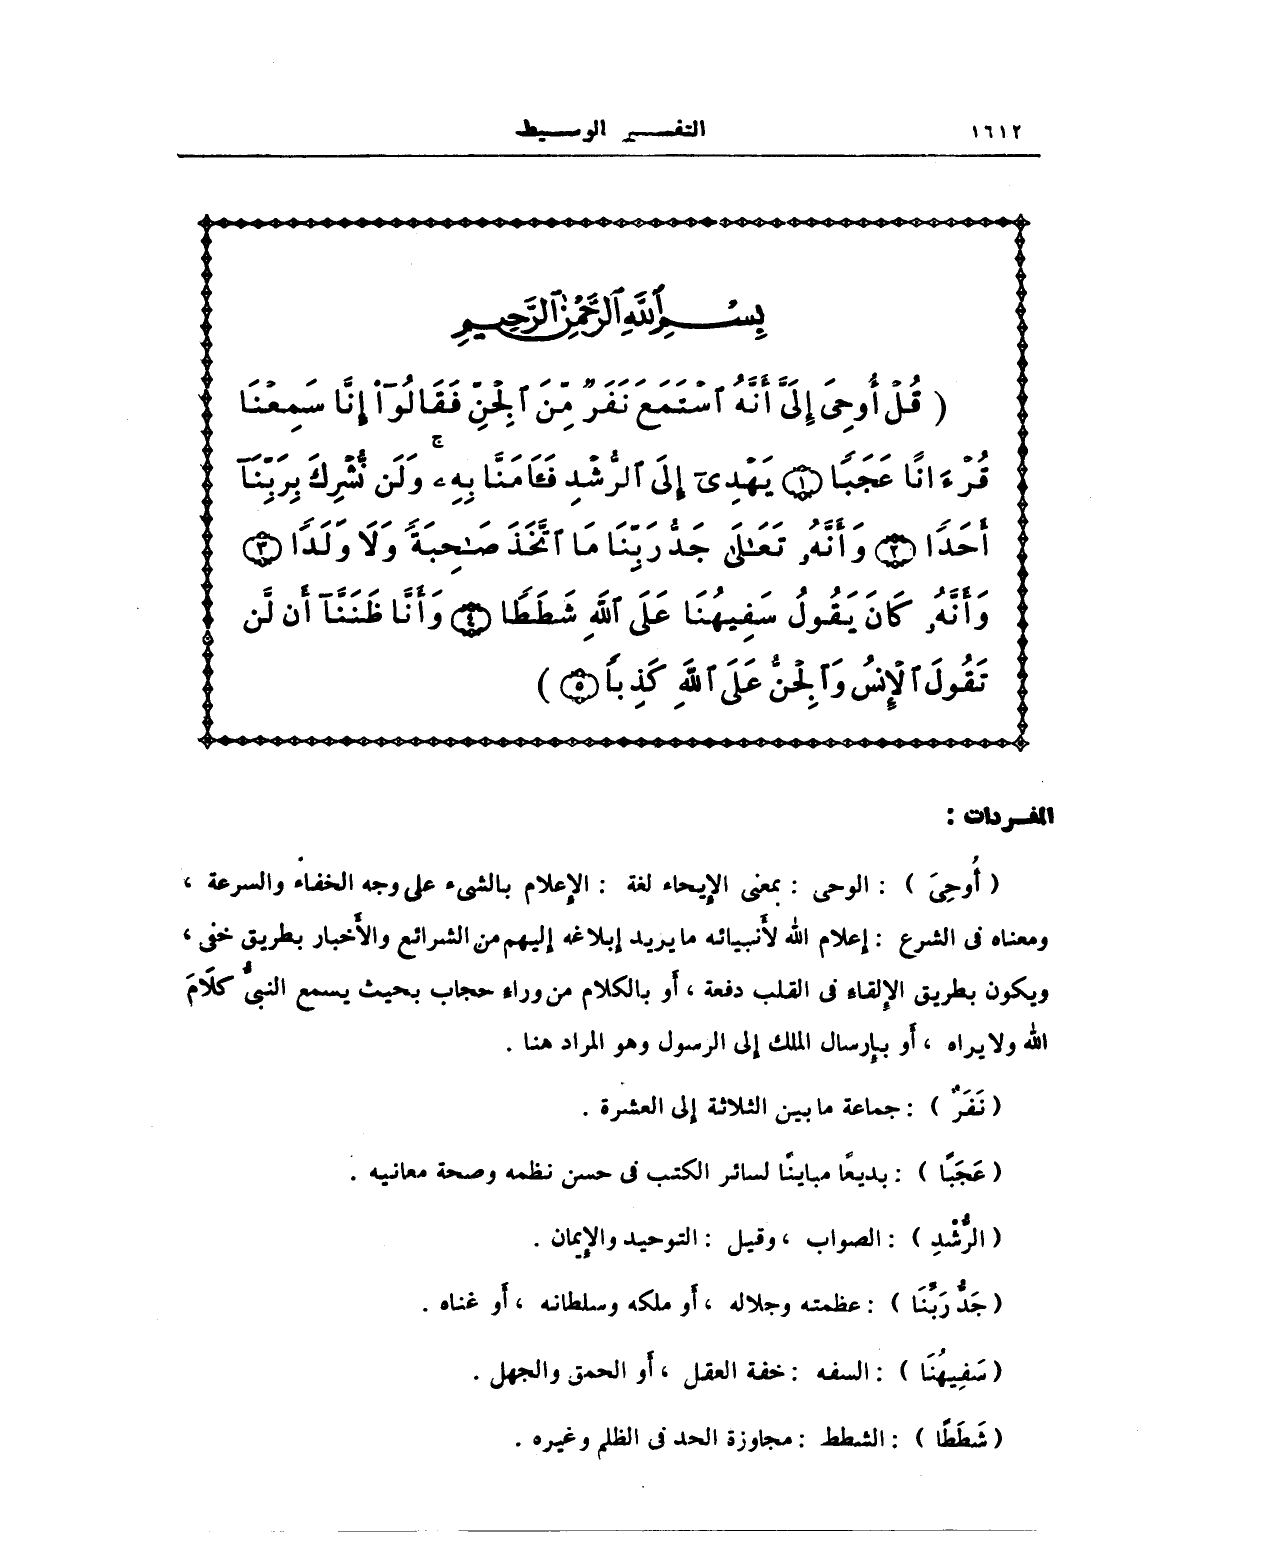 ١٦١٢
التفسير الوسيط
بِسْمِ ٱللَّهِ ٱلرَّحْمَٰنِ ٱلرَّحِيمِ
( قُلْ أُوحِىَ إِلَىَّ أَنَّهُ ٱسْتَمَعَ نَفَرٌ مِّنَ ٱلْجِنِّ فَقَالُوٓا۟ إِنَّا سَمِعْنَا
قُرْءَانًا عَجَبًا ١ يَهْدِىٓ إِلَى ٱلرُّشْدِ فَـَٔامَنَّا بِهِۦ ۖ وَلَن نُّشْرِكَ بِرَبِّنَآ
أَحَدًا ٢ وَأَنَّهُۥ تَعَـٰلَىٰ جَدُّ رَبِّنَا مَا ٱتَّخَذَ صَـٰحِبَةً وَلَا وَلَدًا ٣
وَأَنَّهُۥ كَانَ يَقُولُ سَفِيهُنَا عَلَى ٱللَّهِ شَطَطًا ٤ وَأَنَّا ظَنَنَّآ أَن لَّن
تَقُولَ ٱلْإِنسُ وَٱلْجِنُّ عَلَى ٱللَّهِ كَذِبًا ٥ )
المفردات :
( أُوحِىَ ) : الوحى : بمعنى الإيحاء لغة : الإعلام بالشىء على وجه الخفاء والسرعة ،
ومعناه فى الشرع : إعلام الله لأنبيائه ما يريد إبلاغه إليهم من الشرائع والأخبار بطريق خفى ،
ويكون بطريق الإلقاء فى القلب دفعة ، أو بالكلام من وراء حجاب بحيث يسمع النبىُّ كلَامَ
الله ولا يراه ، أو بإرسال الملك إلى الرسول وهو المراد هنا .
( نَفَرٌ ) : جماعة ما بين الثلاثة إلى العشرة .
( عَجَبًا ) : بديعًا مباينًا لسائر الكتب فى حسن نظمه وصحة معانيه .
( الرُّشْدِ ) : الصواب ، وقيل : التوحيد والإيمان .
( جَدُّ رَبِّنَا ) : عظمته وجلاله ، أو ملكه وسلطانه ، أو غناه .
( سَفِيهُنَا ) : السفه : خفة العقل ، أو الحمق والجهل .
( شَطَطًا ) : الشطط : مجاوزة الحد فى الظلم وغيره .